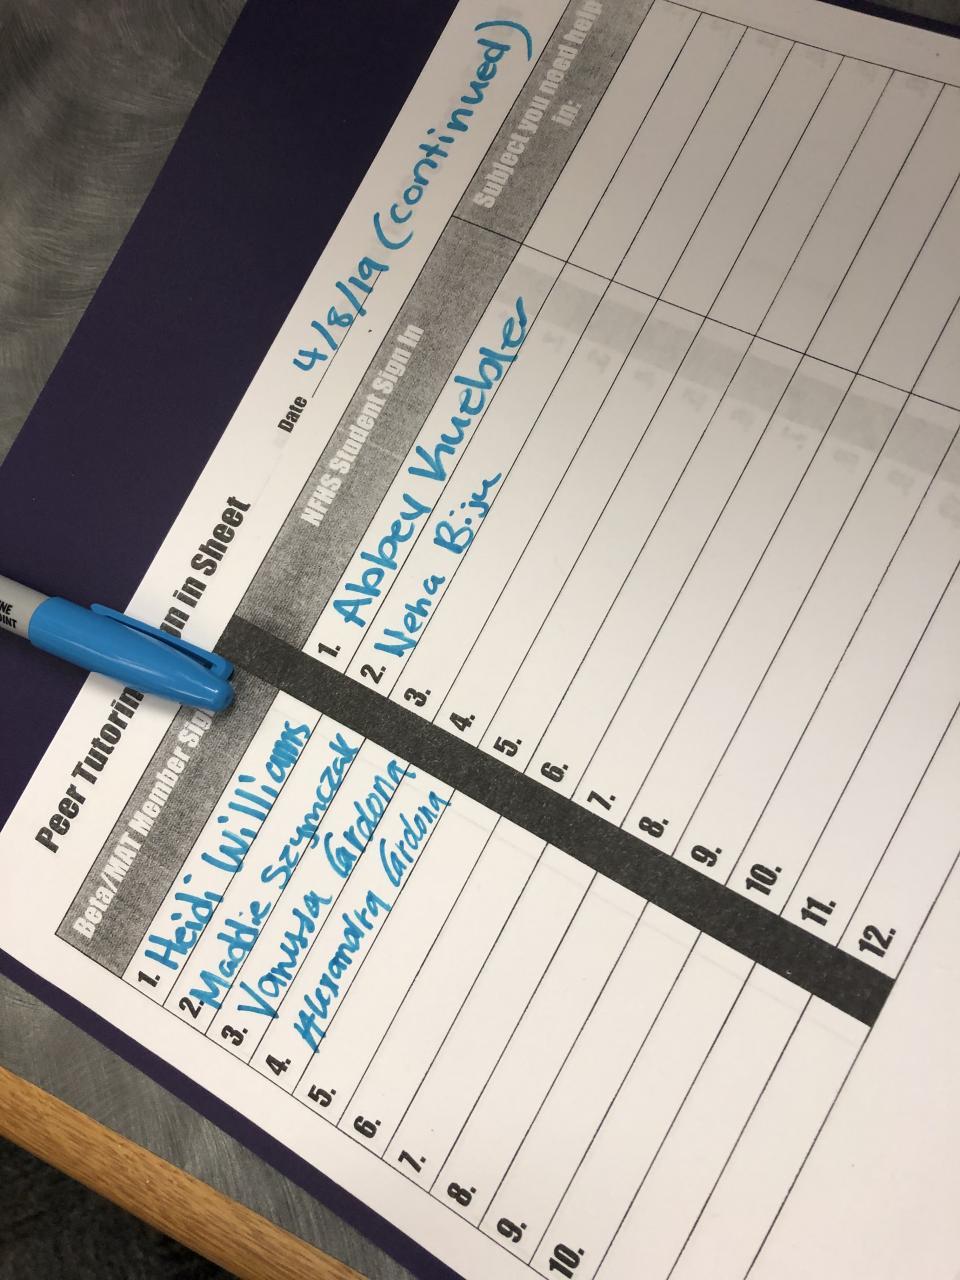 Peer Tutorin on in Sheet
Date 4/8/19 (continued)
Beta/MAT Member Sig
NFHS Student Sign In
Subject you need help in:
1. Heidi Williams
2. Maddie Szymczak
3. Vanessa Cardona
4. Alexandra Cardona
5.
6.
7.
8.
9.
10.
1. Abbey Kuebler
2. Neha Biju
3.
4.
5.
6.
7.
8.
9.
10.
11.
12.